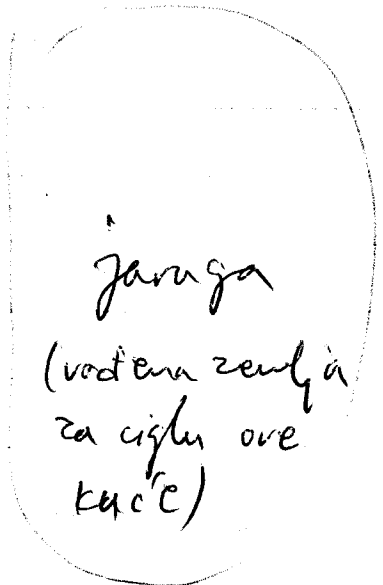 jaruga
(vađena zemlja
za ciglu ove
kuće)